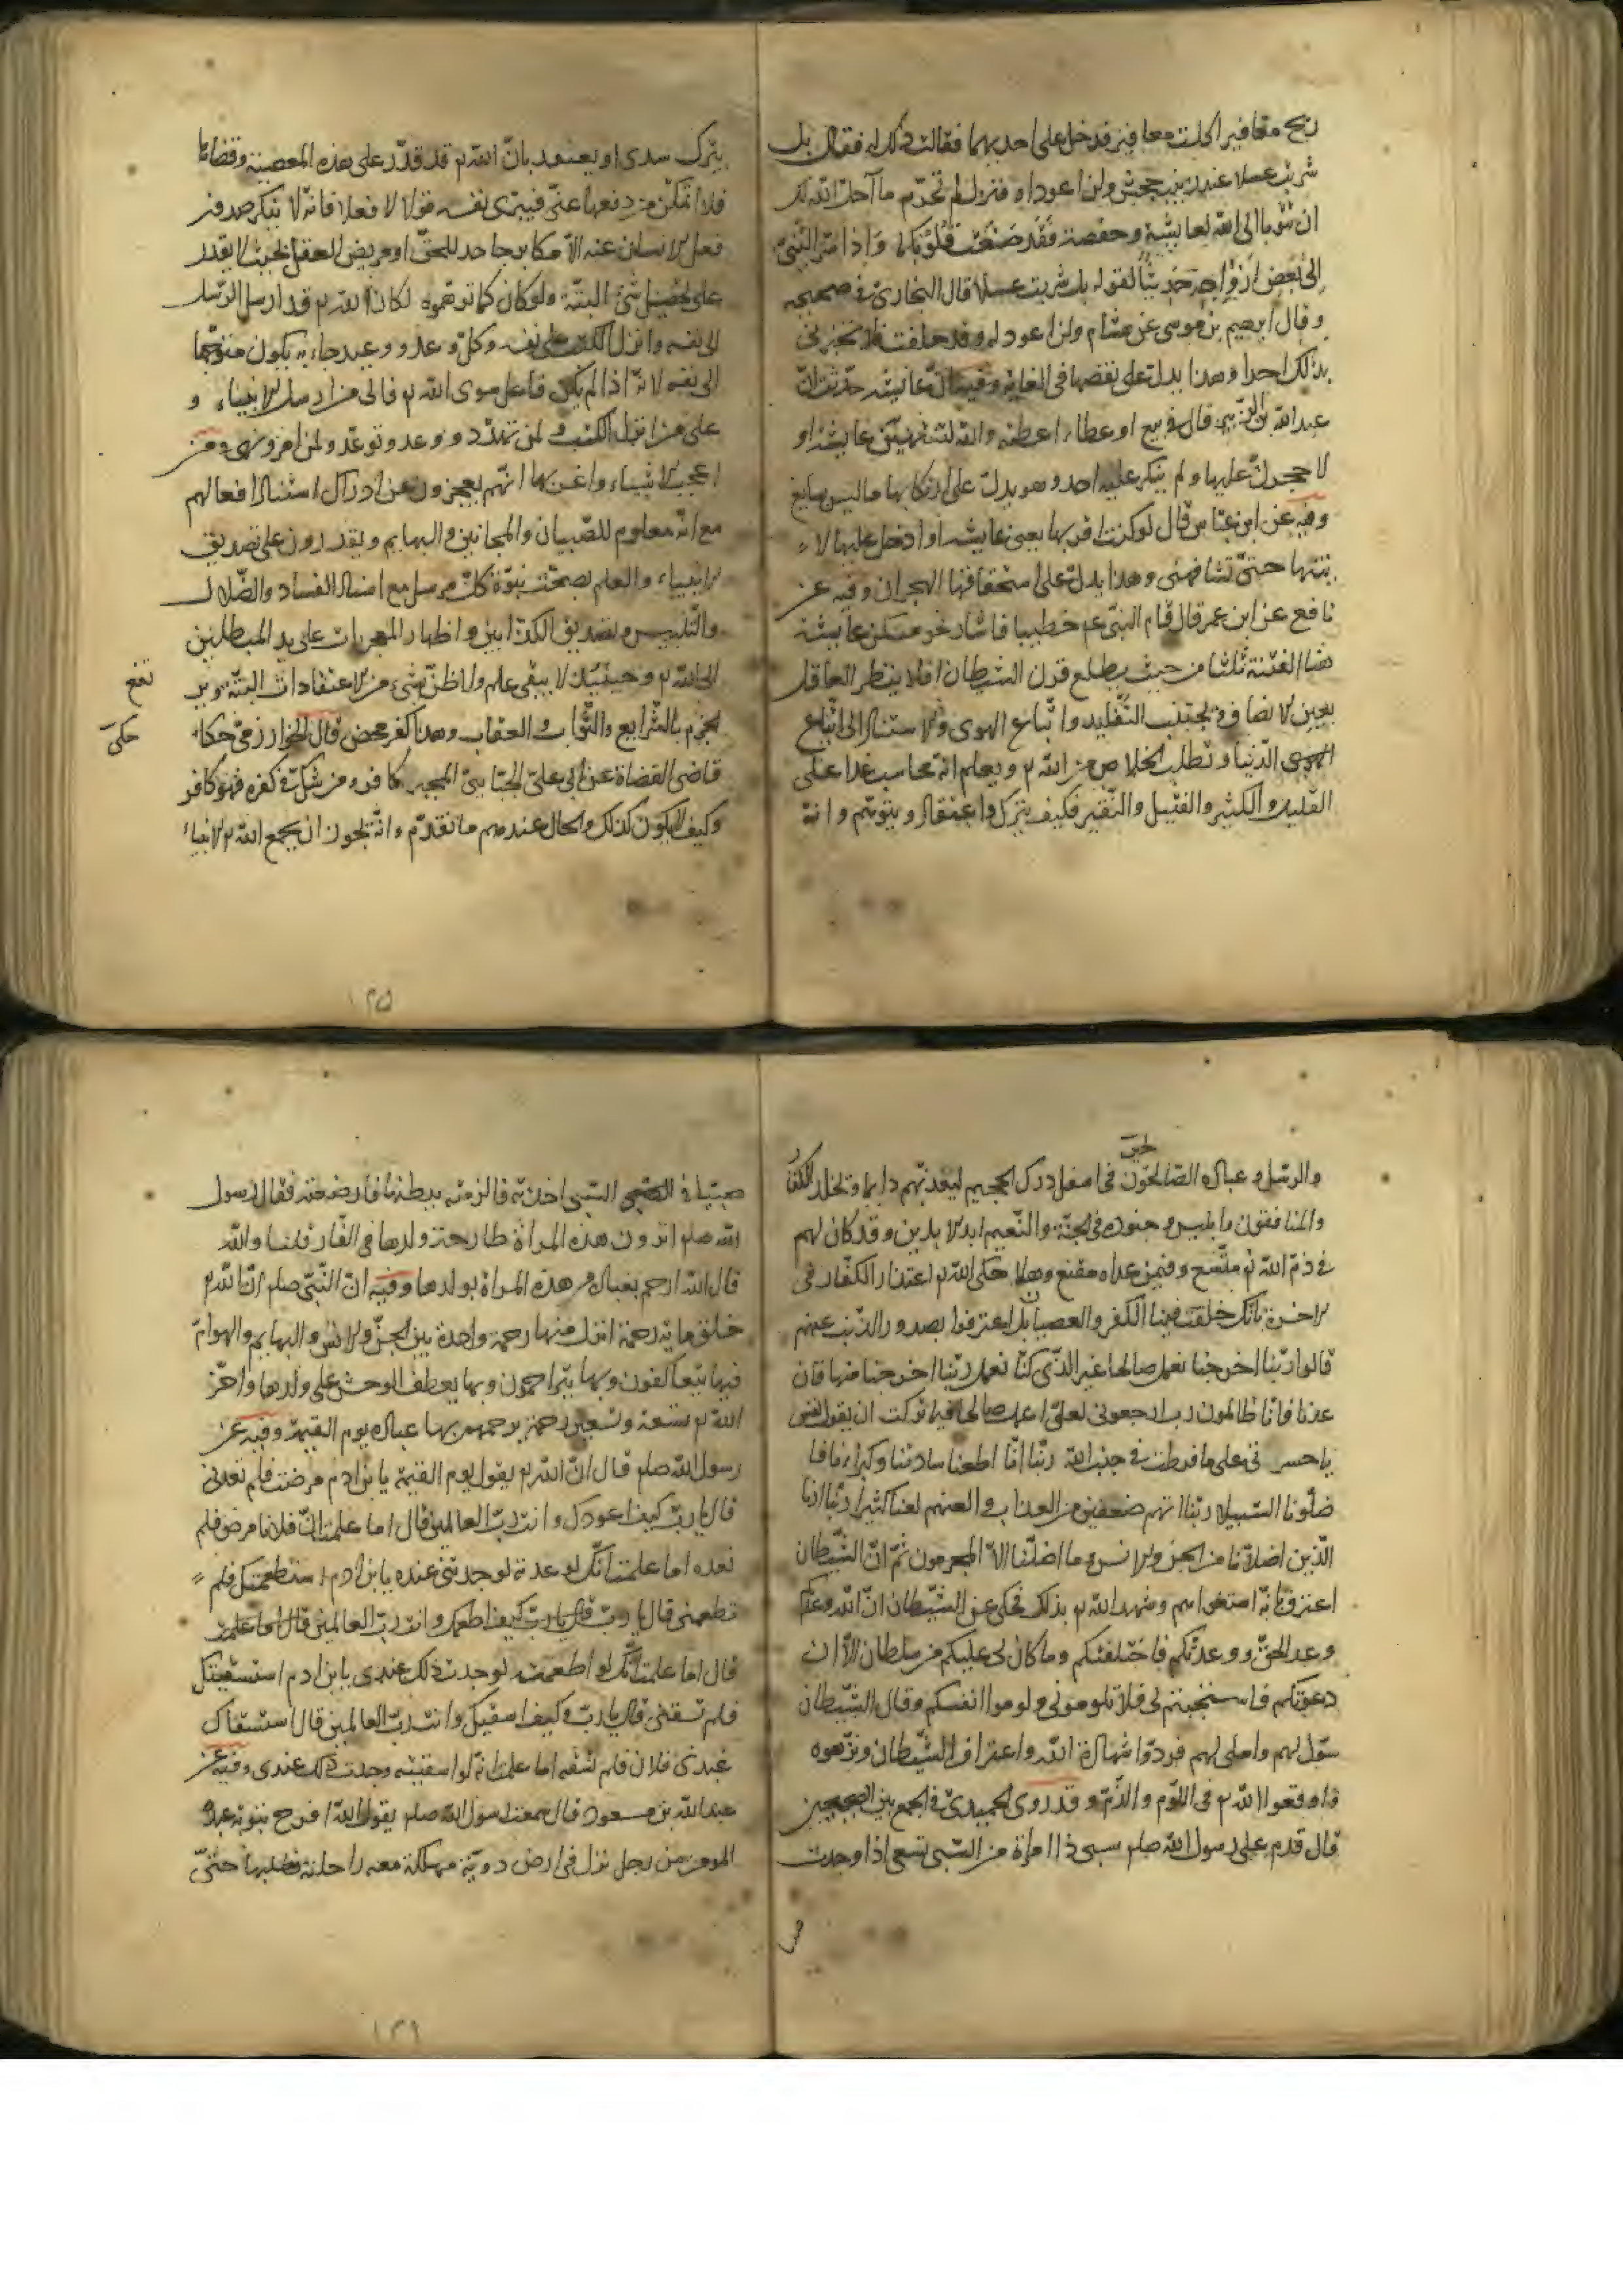 ريح مغافير اكلت مغافير فدخل على احديهما فقالت ذلك له فقال بل
شربت عسلا عند زينب بنت جحش ولن اعود له فنزل لم تحرّم ما احلّ الله لك
ان تتوبا الى الله لعايشة وحفصة فقد صغت قلوبكما واذ اسرّ النّبيّ
الى بعض ازواجه حديثا لقوله بل شربت عسلا قال البخارى فى صحيحه
وقال ابرهيم بن موسى عن هشام ولن اعود له وقد حلفت فلا تخبرى
بذلك احدا وهذا يدل على نقصها فى الغاية وفيه انّ عايشه حدّثت انّ
عبد الله بن الزّبير قال فى بيع او عطاء اعطته والله لتنتهينّ عايشة او
لاحجرنّ عليها ولم ينكر عليه احد وهو يدلّ على ارتكابها ما ليس بسايغ
وفيه عن ابن عبّاس قال لو كنت اقربها يعنى عايشه او ادخل عليها لا
تيتها حتىّ تشافهنى وهذا يدلّ على استحقاقها الهجران وفيه عن
نافع عن ابن عمر قال قام النبىّ عم خطيبا فاشار نحو مسكن عايشة
هنا الفتنة ثلثا من حيث يطلع قرن الشيطان افلا ينظر العاقل
بعين الانصاف ويجتنب التّقليد واتّباع الهوى والاستناد الى اتّباع
الهوى الدّنيا ويطلب الخلاص من الله تع ويعلم انه محاسب غدا على
القليل والكثير والفتيل والنّقير فكيف يترك واعتقاد ويتوهّم وانه
يترك سدى او يعتقد بانّ الله تع قد قدّر على هذه المعصية وقضاها
فلا اتمكّن من دفعها عنّى فيبرى نفسه قولا لا فعلا فانّه لا ينكر صدور
فعل الانسان عنه الاّ مكابر جاحد للحقّ او مريض العقل بحيث لا يقدر
على تحصيل شئ البتّة ولو كان كما توهّموه لكان الله تع قد ارسل الرّسل
الى نفسه وانزل الكتب على نفسه وكلّ وعد ووعيد جاء به يكون متوجّها
الى نفسه لانّه اذا لم يكن فاعل سوى الله تع فالى من ارسل الانبياء و
على من انزل الكتب ولمن تهدّد ووعد وتوعّد ولمن امر ونهى ومن
اعجب الاشياء واغربها انّهم يعجزون عن ادراك استناد افعالهم
مع انّه معلوم للصّبيان والمجانين والبهايم ويقدرون على تصديق
الانبياء والعلم بصحّة نبوّة كلّ مرسل مع استناد الفساد والضّلال
والتّلبيس وتصديق الكذّابين واظهار المعجزات على يد المبطلين
الى الله تع وحينئذ لا يبقى علم ولا ظنّ بشئ من الاعتقادات البتّة ويرتفع
الجزم بالشّرايع والثّواب والعقاب وهذا كفر محض قال الخوارزمى حكاه حكى
قاضى القضاة عن ابى علىّ الجبّايى انّ المجبر كافر ومن شكّ فى كفره فهو كافر
وكيف لا يكون كذلك والحال عندهم ما تقدّم وانّه يجوز ان يجمع الله الانبياء
١٢٥
والرّسل وعباده الصّالحون لحين فى اسفل درك الجحيم ليعذّبهم دايما ويخلد الكفار
والمنافقون وابليس وجنوده فى الجنّة والنّعيم ابد الابدين وقد كان لهم
فى ذمّ الله تع متّسع وفيمن عداه مقنع وهلا حكى الله تع اعتذار الكفّار فى
الاخرة بانّك خلقت فينا الكفر والعصيان بل اعترفوا بصدور الذّنب عنهم
قالوا ربّنا اخرجنا نعمل صالحا غير الذّى كنّا نعمل ربّنا اخرجنا منها فان
عدنا فانا ظالمون رب ارجعونى لعلّى اعمل صالحا فيما تركت ان يقول نفس
ياحسرتى على ما فرطت فى جنب الله ربّنا انّا اطعنا سادتنا وكبراءنا فا
ضلّونا السّبيلا ربّنا اتهم ضعفين من العذاب والعنهم لعنا كثيرا ربّنا ارنا
الّذين اضلاّنا من الجن والانس وما اضلّنا الاّ المجرمون ثمّ انّ الشّيطان
اعترف بانّه استغواهم وشهد الله تع بذلك فحكى عن الشّيطان انّ الله وعدكم
وعد الحقّ ووعدتّكم فاخلفتكم وما كان لى عليكم من سلطان الاّ ان
دعوتكم فاستجبتم لى فلا تلومونى ولوموا انفسكم وقال الشّيطان
سوّل لهم واملى لهم فردّوا شهادة الله واعتراف الشّيطان ونزّهوه
واوقعوا الله تع فى اللّوم والذّم وقد روى الحميدىّ فى الجمع بين الصحيحين
قال قدم على رسول الله صلم سبى فاذا امراة من السّبى تسعى اذا وجدت
صبيا
صبيّا فى السّبى اخذته فالزمته ببطنها فارضعته فقال رسول
الله صلم اترون هذه المراة طارحة ولدها فى النّار قلنا والله
قال الله ارحم بعباده من هذه المراة بولدها وفيه انّ النّبىّ صلم انّ الله تع
خلق ماية رحمة انزل منها رحمة واحدة بين الجنّ والانس والبهايم والهوامّ
فيها يتعاطفون وبها يتراحمون وبها يعطف الوحش على ولدها واخّر
الله تع تسعة وتسعين رحمة يرحم بها عباده يوم القيمة وفيه عن
رسول الله صلم قال انّ الله تع يقول يوم القيمة يا بن ادم مرضت فلم تعدنى
قال يا ربّ كيف اعودك وانت ربّ العالمين قال اما علمت انّ فلانا مرض فلم
تعده اما علمت انّك لو عدته لوجدتنى عنده يا بن ادم استطعمتك فلم
تطعمنى قال يا ربّ كيف اطعمك وانت ربّ العالمين قال اما علمت
قال اما علمت انّك لو اطعمته لوجدت ذلك عندى يا بن ادم استسقيتك
فلم تسقنى قال يا ربّ وكيف اسقيك وانت ربّ العالمين قال استسقاك
عبدى فلان فلم تسقه اما علمت انّه لو اسقيته وجدت ذلك عندى وفيه عن
عبد الله بن مسعود قال سمعت رسول الله صلم يقول الله افرح بتوبة عبده
المومن من رجل نزل فى ارض دويّة مهلكة معه راحلته فطلبها حتىّ
١٢٦